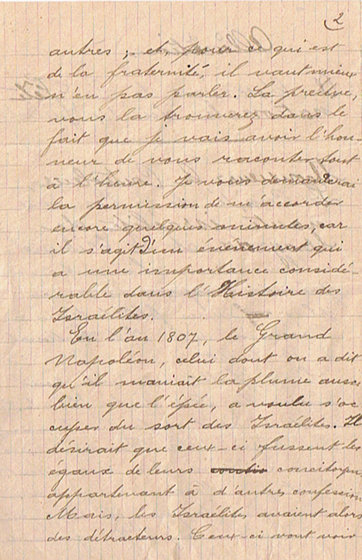 2
autres ; et, pour ce qui est
de la fraternité, il vaut mieux
n'en pas parler. La preuve,
vous la trouverez dans le
fait que je vais avoir l'hon-
neur de vous raconter tout
à l'heure. Je vous demanderai
la permission de m'accorder
encore quelques minutes, car
il s'agit d'un événement qui
a une importance considé
rable dans l'Histoire des
Israélites.
En l'an 1807, le Grand
Napoléon, celui dont on a dit
qu'il maniait la plume aussi
bien que l'épée, a voulu s'oc
cuper du sort des Israélites. Il
désirait que ceux-ci fussent les
égaux de leurs concitoyens
appartenant à d'autres confessions
Mais, les Israélites avaient alors
des détracteurs. Ceux-ci vont voir